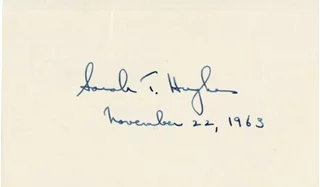 Sarah T. Hughes
November 22, 1963